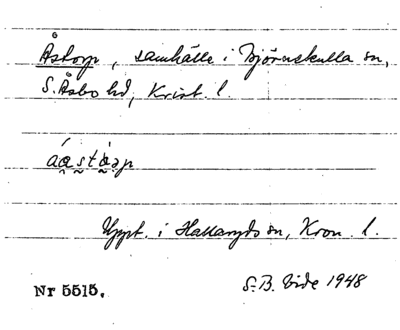 Åstorp, samhälle i Björnekulla sn,
S. Åsbo hd, Krist. l.
Uppt. i Hallaryds sn, Kron. l.
S. B. Vide 1948
Nr 5515.